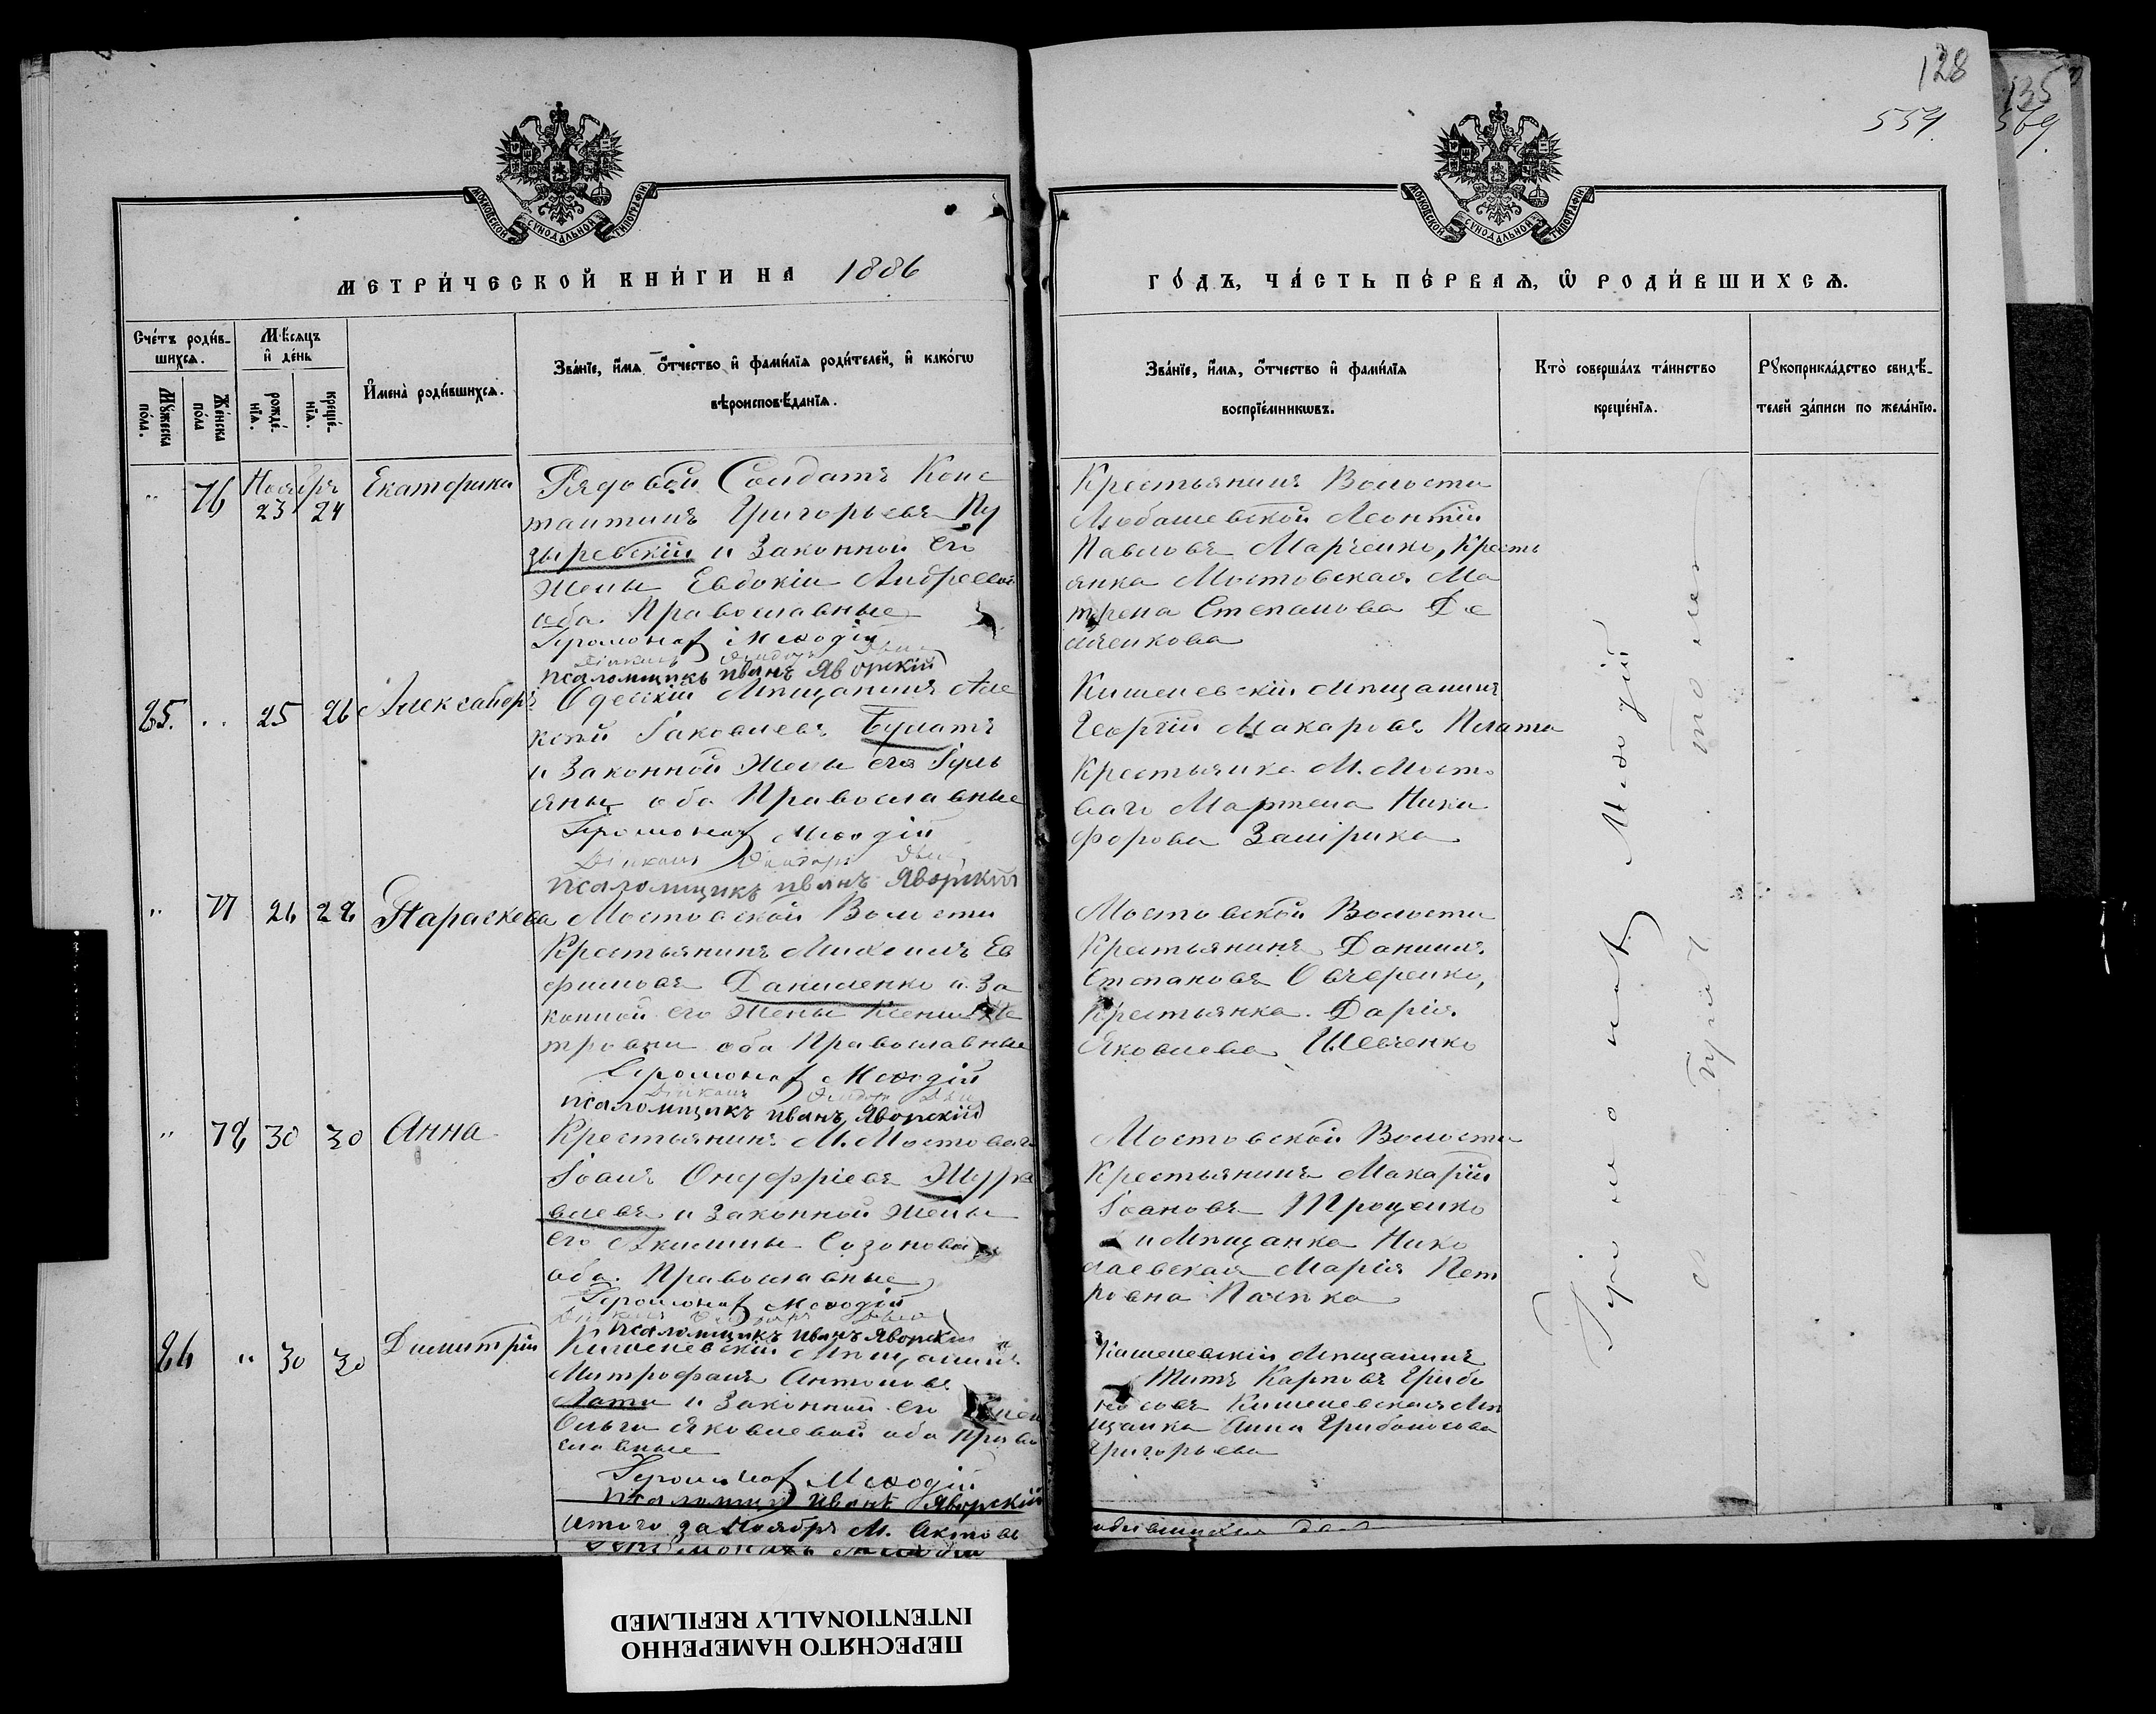 128
559.
135
569.
МОСКОВСКОЙ СѴНОДАЛЬНОЙ ТИПОГРАФІИ
МОСКОВСКОЙ СѴНОДАЛЬНОЙ ТИПОГРАФІИ
МЕТРИ́ЧЕСКОЙ КНИ́ГИ НА 1886
ГО́ДЪ, ЧА́СТЬ ПЕ́РВАѦ, Ѿ РОДИ́ВШИХСѦ.
Сче́тъ роди́в-
шихсѧ.
Мꙋжеска по́ла.
Же́нска по́ла
Мѣ́сѧцъ
и҆ де́нь
рожде́-нїѧ.
креще́-нїѧ.
И҆мена̀ роди́вшихсѧ.
Зва́нїе, и҆́мѧ ѻ҆́тчество и҆ фами́лїѧ роди́телей, и҆ како́гѡ
вѣроисповѣ́данїѧ.
Зва́нїе, и҆́мѧ, ѻ҆́тчество и҆ фами́лїѧ
воспрїе́мникѡвъ.
Кто̀ соверша́лъ та́инство
креще́нїѧ.
Рꙋкоприкла́дство свидѣ́-
телей за́писи по жела́нїю.
" 76 Ноября 23 24 Екатерина
Рядовой Солдатъ Конс
тантинъ Григорьевъ Пу
зыревскій и Законной его
Жены Евдокіи Андреевой
оба Православные
Іеромонах Меѳодій
Діаконъ
псаломщикъ иванъ Яворскій
Крестьянинъ Волости
Любашевской Леонтій
Павловъ Марченко, Кресть
янка Мостовская Ма
трена Степанова Де
мченкова
85. " 25 26 Александръ
Одесскій Мѣщанинъ Але
ксѣй Іаковлевъ Булатъ
и Законной Жены его Іуль
яны оба Православные
Іеромонах Меѳодій
Діаконъ
псаломщикъ иванъ Яворскій
Кишеневскій Мѣщанинъ
Георгій Макаровъ Плата
Крестьянка М. Мосто
ваго Марѳена Ники
форова
" 77 26 28 Параскева
Мостовской Волости
Крестьянинъ Михаилъ Ев
фимовъ Даниленко и За
конной его Жены Ксении Пе
тровни оба Православные
Іеромонах Меѳодій
Діаконъ
псаломщикъ иванъ Яворскій
Мостовской Волости
Крестьянинъ Даниилъ
Степановъ Овчеренко,
Крестьянка Дарія
Яковлева Шевченко
" 78 30 30 Анна
Крестьянинъ М. Мостоваго
Іоанъ Онуфріевъ Журра
влевъ и Законной Жены
его Акилины Созоновой
оба Православные
Іеромонах Меѳодій
псаломщикъ иванъ Яворскій
Мостовской Волости
Крестьянинъ Макарій
Іоановъ Троценко
и Мѣщанка Нико
лаевская Марія Пет
ровна
86 " 30 30 Димитрій
Кишеневскій Мѣщанинъ
Митрофанъ Антоновъ
Лата и Законной его Жены
Ольги Яковлевой оба Право
славные
Іеромонах Меѳодій
псаломщикъ Иванъ Яворскій
Кишеневскій Мѣщанинъ
Титъ Карповъ Грибо
носовъ Кишеневская Мѣ
щанка Анна Грибоносова
Григорьева
Іеромонах Меѳодій
Итого за Ноябрь М. Актовъ
Іеромонахъ Меѳодій
ПЕРЕСНЯТО НАМЕРЕННО
INTENTIONALLY REFILMED